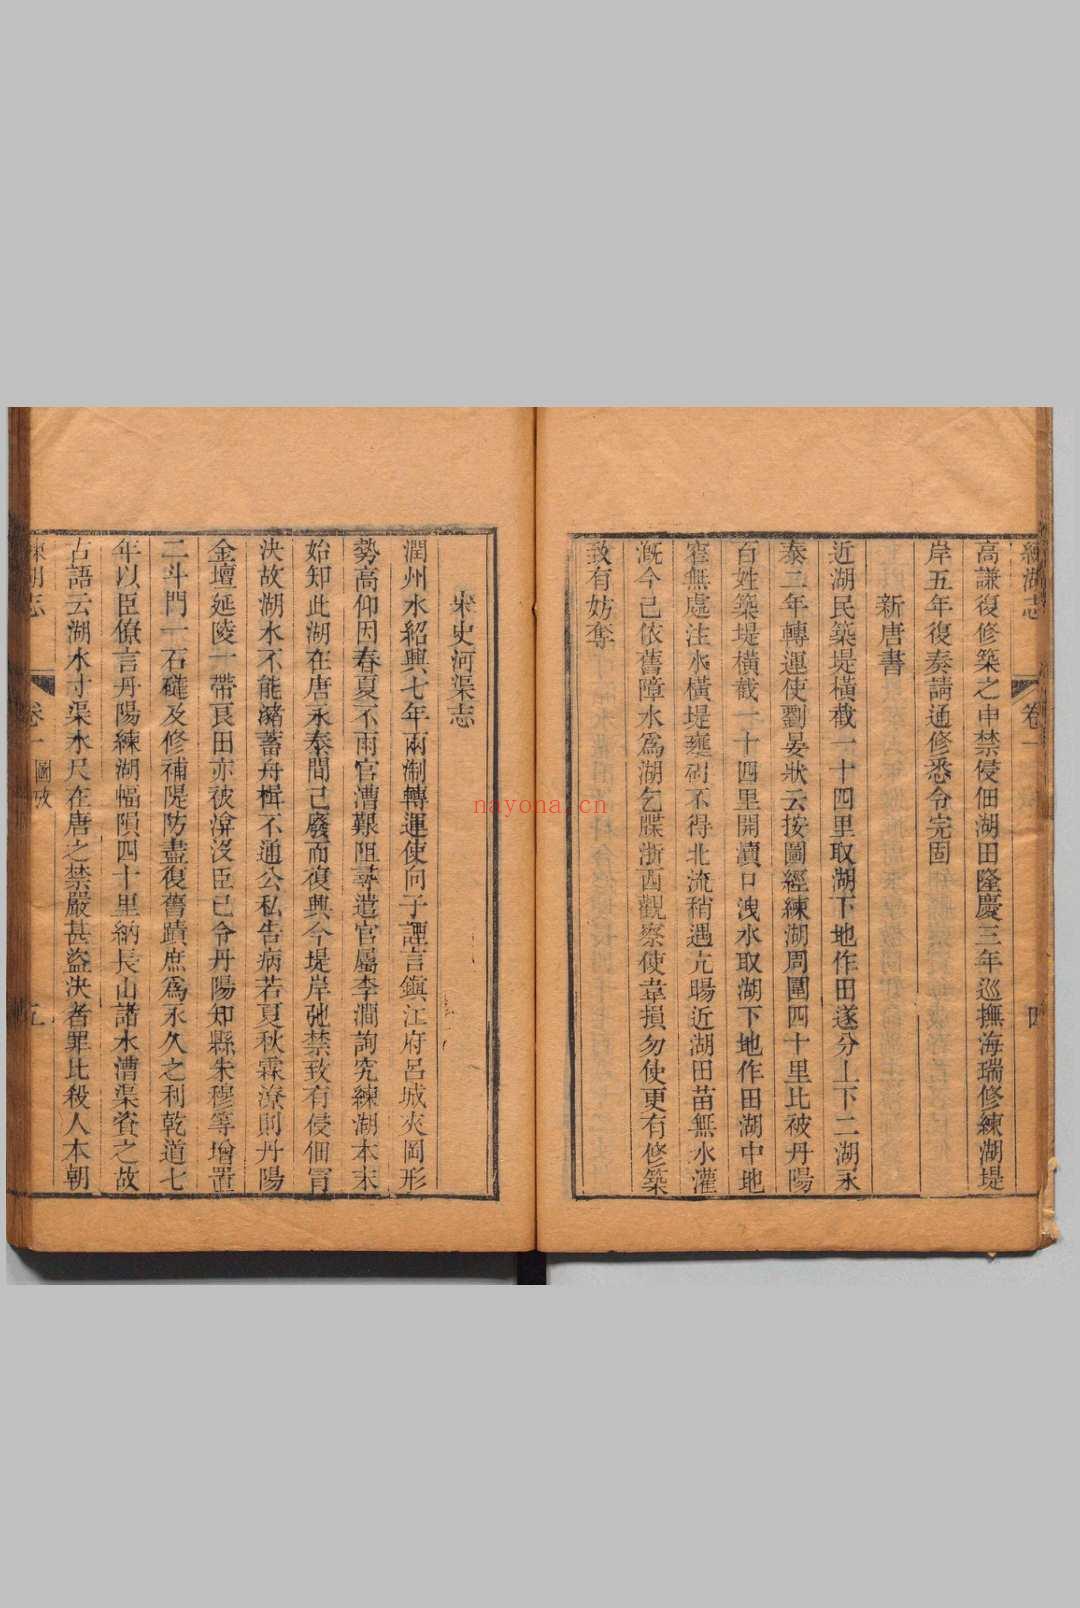 練湖志
卷一
四
高謙復修築之申禁侵佃湖田隆慶三年巡撫海瑞修練湖堤
岸五年復奏請通修悉令完固
新唐書
近湖民築堤橫截一十四里取湖下地作田遂分上下二湖永
泰二年轉運使劉晏狀云按圖經練湖周圍四十里比被丹陽
百姓築堤橫截一十四里開瀆口洩水取湖下地作田湖中地
窄無處注水橫堤壅礙不得北流稍遇亢暘近湖田苗無水灌
溉今已依舊障水為湖乞牒浙西觀察使韋損勿使更有修築
致有妨奪
宋史河渠志
潤州水紹興七年兩淛轉運使向子諲言鎮江府呂城夾岡形
勢高仰因春夏不雨官漕艱阻尋遣官屬李澗詢究練湖本末
始知此湖在唐永泰間已廢而復興今堤岸弛禁致有侵佃冐
決故湖水不能瀦蓄舟楫不通公私告病若夏秋霖潦則丹陽
金壇延陵一帶良田亦被渰沒臣已令丹陽知縣朱穆等增置
二斗門一石䃮及修補隄防盡復舊蹟庶為永久之利乾道七
年以臣僚言丹陽練湖幅隕四十里納長山諸水漕渠資之故
古語云湖水寸渠水尺在唐之禁嚴甚盜決者罪比殺人本朝
練湖志
卷一
圖攷
五
nayona.cn